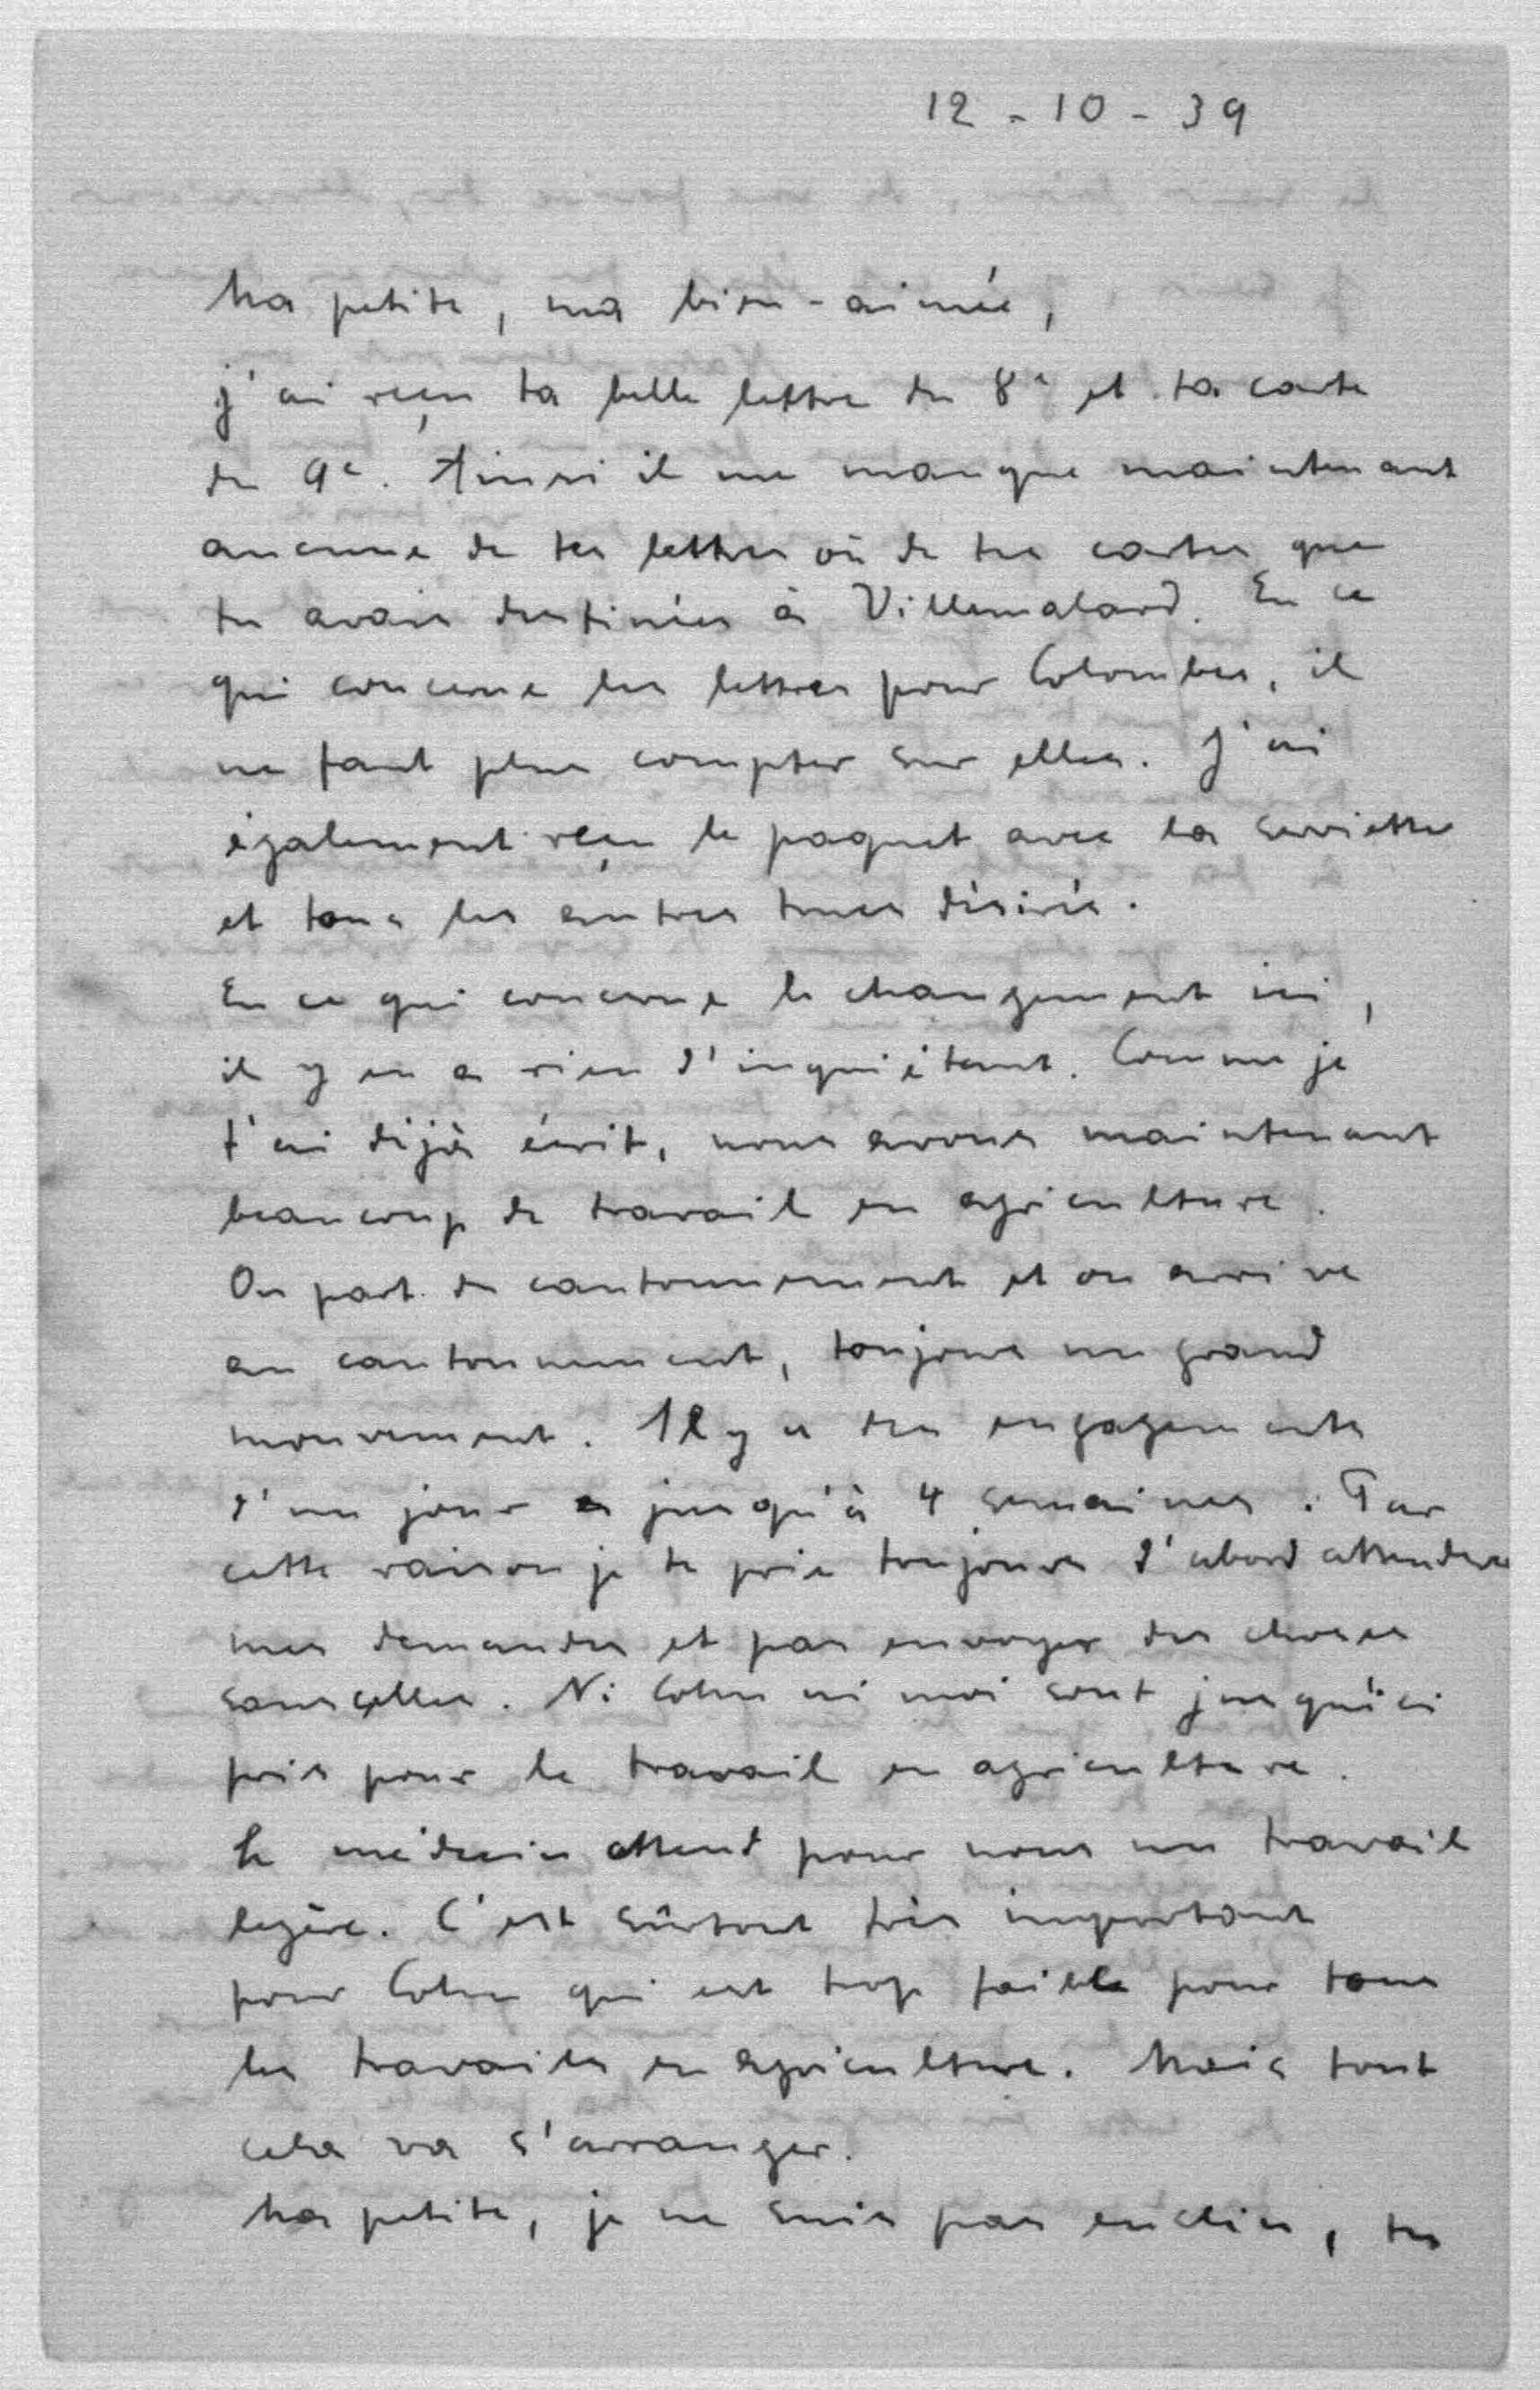 12 - 10 - 39
Ma petite, ma bien-aimée,
j'ai reçu ta belle lettre du 8e et ta carte
du 9e. Ainsi il me manque maintenant
aucune de tes lettres où de tes cartes que
tu avais destinées à Villemalard. En ce
qui concerne les lettres pour Colombes, il
ne faut plus compter sur elles. J'ai
également reçu le paquet avec la serviette
et tous les autres trucs désirés.
En ce qui concerne le changement ici,
il y en a rien d'inquiétant. Comme je
t'ai déjà écrit, nous avons maintenant
beaucoup de travail en agriculture.
On part du cantonnement et on arrive
au cantonnement, toujours un grand
mouvement. Il y a des engagements
d'un jour a jusqu'à 4 semaines. Par
cette raison je te prie toujours d'abord attendre
mes demandes et pas envoyer des choses
sans celles. Ni Cohn ni moi sont jusqu'ici
pris pour le travail en agriculture.
Le médecin attend pour nous un travail
legère. C'est sûrtout très important
pour Cohn qui est trop faible pour tous
les travails en agriculture. Mais tout
cela va s'arranger.
Ma petite, je ne suis pas enclin, tu